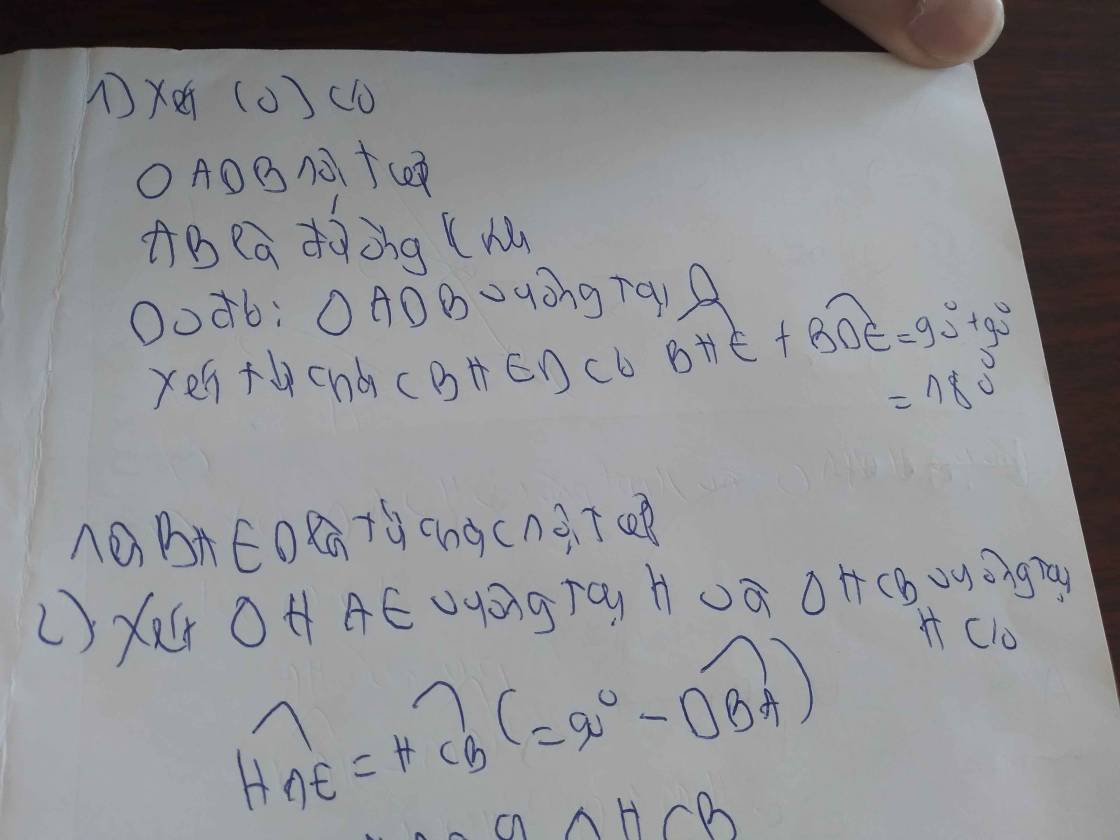 1) Xét (O) có
Δ ADB nội tiếp
AB là đường kính
Do đó: Δ ADB vuông tại D
Xét tứ giác BHED có BHE + BDE = 90° + 90°
= 180°
nên BHED là tứ giác nội tiếp
2) Xét Δ HAE vuông tại H và Δ HCB vuông tại
H có
HAE = HCB (= 90° - DBA)
Δ HCB